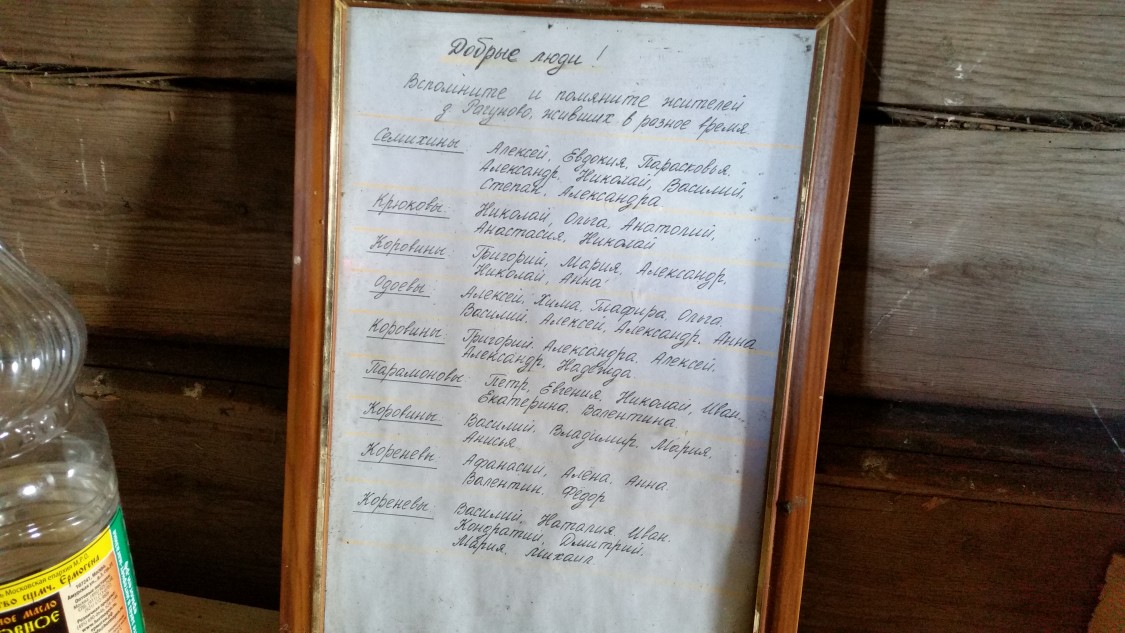 Добрые люди !
Вспомните и помяните жителей
д Рагуново, живших в разное время
Семихины Алексей, Евдокия, Парасковья.
Александр, Николай, Василий,
Степан, Александра
Крюковы Николай, Ольга, Анатолий,
Анастасия, Николай
Коровины Григорий, Мария, Александр,
Николай, Анна
Одоевы Алексей, Хима, Глафира, Ольга.
Василий, Алексей, Александр, Анна
Коровины Григорий, Александра, Алексей.
Александр, Надежда
Парамоновы Петр, Евгения, Николай, Иван.
Екатерина, Валентина
Коровины Василий, Владимир, Мария,
Анисья
Кореневы Афанасий, Алёна, Анна.
Валентин, Фёдор
Кореневы Василий, Наталия, Иван.
Кондратий, Дмитрий.
Мария, Михаил
Московская епархия М.Р.О.
сщмч. Ермогена
масло